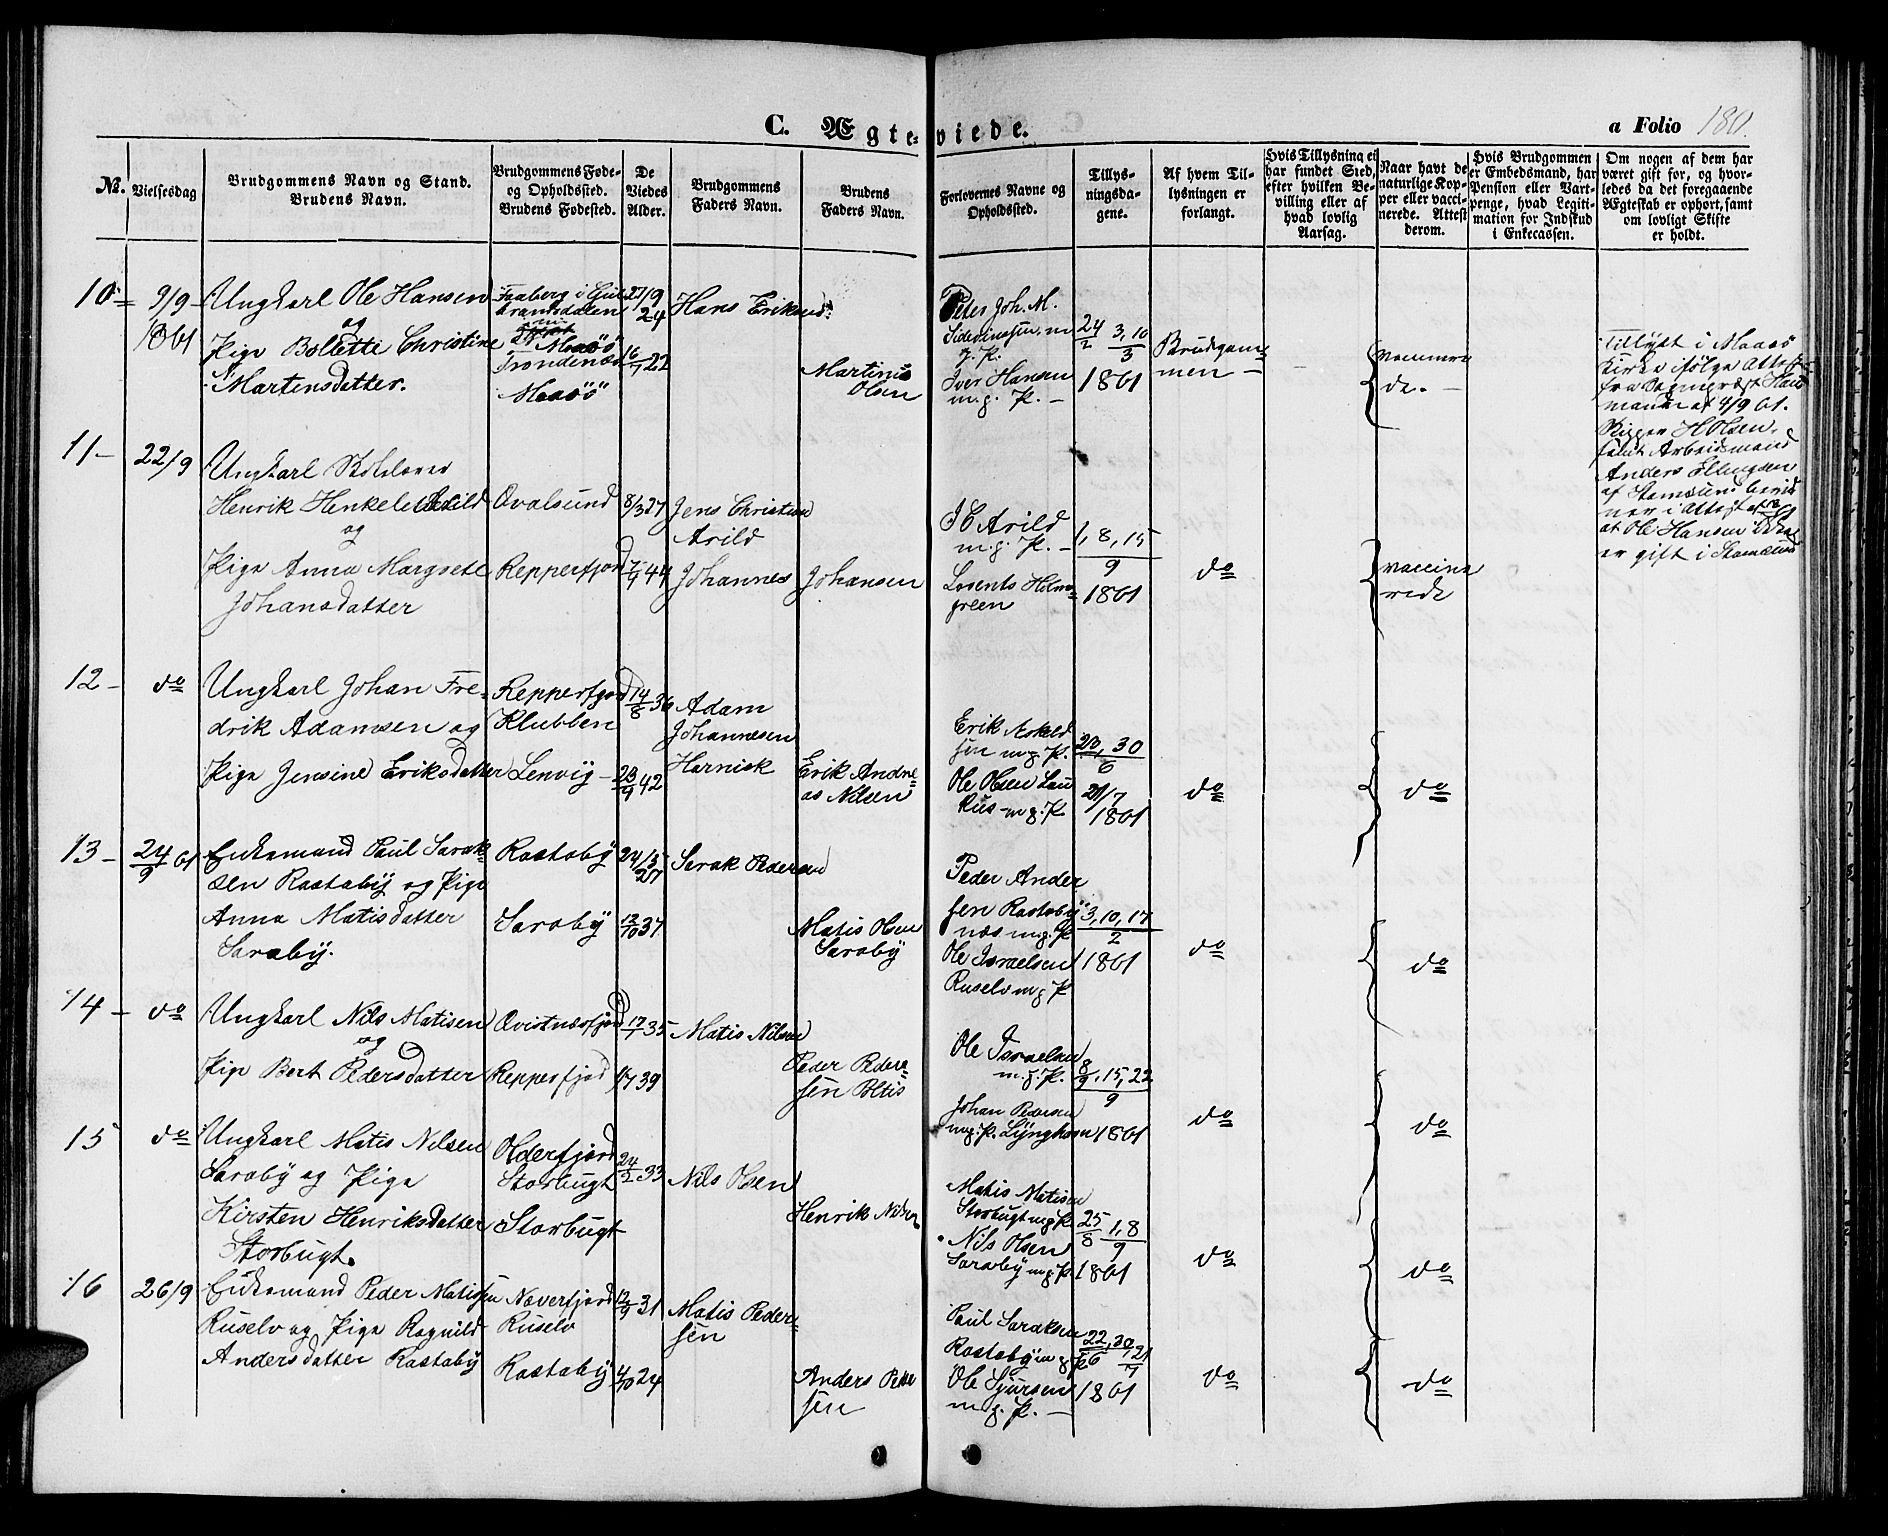 C. Ægteviede.
a Folio 180.
No.
Vielsesdag
Brudgommens Navn og Stand.
Brudens Navn.
Brudgommens Føde-
og Opholdssted.
Brudens Fødested.
De
Viedes
Alder.
Brudgommens
Faders Navn.
Brudens
Faders Navn.
Forlovernes Navne og
Opholdssted.
Tillys-
ningsda-
gene.
Af hvem Til-
lysningen er
forlangt.
Hvis Tillysning ei
har fundet Sted,
efter hvilken Be-
villing eller af
hvad lovlig
Aarsag.
Naar havt de
naturlige Kop-
per eller vacci-
nerede. Attest
derom.
Hvis Brudgommen
er Embedsmand, har
Pension eller Vart-
penge, hvad Legiti-
mation for Indskud
i Enkecassen.
Om nogen af dem har
været gift for, og hvor-
ledes da det foregaaende
Ægteskab er ophørt, samt
om lovligt Skifte
er holdt.
10
9/9
1861
Ungkarl Ole Hansen
og
Pige Bollette Christine
Martensdatter.
Faaberg i Gul
brandsdalen
Maasö
Trondenæs
Maasö
27/9
24
16/7 22
Hans Eriksen
Martinus
Olsen
Peter Joh. M.
m.
g. P.
Iver Hansen
m. g. P. -
24/2 3, 10/3
1861
Brudgom-
men -
-
vaccinere
de. -
Tillyst i Maasö
Kirke ifølge Attest
fra Sognepræst
af 4/9 61.
Skipper H Olsen
samt Arbeidsmand
Anders Ellingsen
af Stamsund bevid
ner i Attest
at Ole Hansen ikke
er gift i Stamsund
11-
22/9
Ungkarl
Henrik Henkel Arild
og
Pige Anna Margrete
Johansdatter
Qvalsund
Repperfjord
8/3 27
7/9 44
Jens Christian
Arild
Johannes Johansen
J C Arild
m. g. P. -
Lorents Holm-
green
1, 8, 15/9
1861
do
vaccine
rede
12-
do
Ungkarl Johan Fre-
drik Adamsen og
Pige Jensine Eriksdatter
Repperfjord
Klubben
Lenvig -
14/8 36
23/9 42
Adam
Johannesen
Harnisk
Erik Andre-
as Nilsen
Erik
sen m g. P.
Ole Olsen
m. g. P.
23, 30/6
21/7
1861
do
do
13-
24/9 61
Enkemand Paul Sarak-
sen Rastaby og Pige
Anna Matisdatter
Saraby.
Rastaby
Saraby
24/5
27
12/10 37
Sarak Pedersen
Matis Olsen
Saraby
Peder Ander
sen Rastaby-
næs m. g. P
Ole Israelsen
Ruselv m g P
3, 10, 17/2
1861
do
do
14-
do
Ungkarl Nils Matisen
og
Pige Bert Pedersdatter
Qvistnæsfjord
Repperfjord
17/7 35
1/7 39
Matis Nilsen
Peder Peder-
sen Boltis
Ole Israelsen
m. g. P.
Johan Pedersen
m g. P. Lynghavn
8/9, 15, 22/9
1861
do
do
15
do
Ungkarl Matis Nilsen
Saraby og Pige
Kirsten Henriksdatter
Storbugt.
Olderfjord
Storbugt
Storbugt
24/2 33
Nils Olsen
Henrik Nilsen
Matis Matisen
Storbugt m g P.
Nils Olsen
Saraby m g. P.
25/8 1, 8/9
1861
do
do
16
26/9
Enkemand Peder Matisen
Ruselv og Pige Ragnild
Andersdatter Rastaby
Naverfjord
Ruselv
Rastaby
12/9 31
4/10 24
Matis Peder-
sen
Anders Peder
sen
Paul Saraksen
Rastaby m g P
Ole Sjursen
m. g. P. -
22, 30/6 21/7
1861
do
do